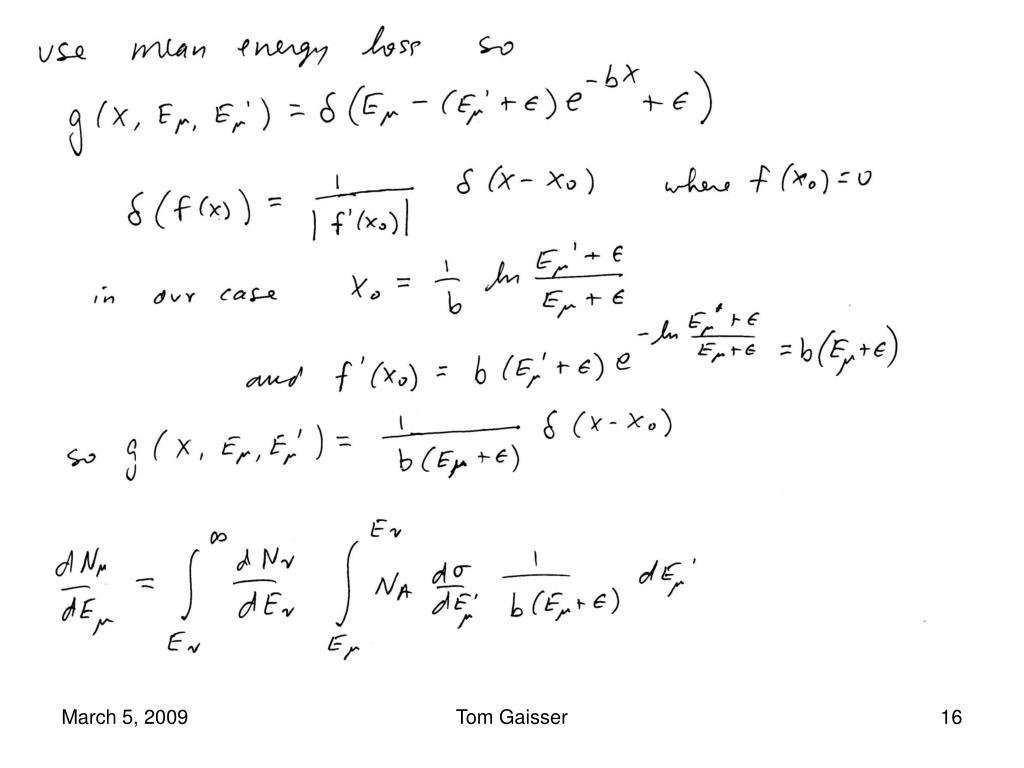 use mean energy loss so
g(x, Eμ, Eμ') = δ(Eμ − (Eμ' + ε) e^{−bx} + ε)
δ(f(x)) = 1 / |f'(x₀)| δ(x − x₀) where f(x₀) = 0
in our case x₀ = 1/b ln (Eμ' + ε)/(Eμ + ε)
and f'(x₀) = b(Eμ' + ε) e^{−ln (Eμ' + ε)/(Eμ + ε)} = b(Eμ + ε)
so g(x, Eμ, Eμ') = 1 / b(Eμ + ε) δ(x − x₀)
dNμ/dEμ = ∫_{Eν}^{∞} dNν/dEν ∫_{Eμ}^{Eν} N_A dσ/dEμ' 1/b(Eμ + ε) dEμ'
March 5, 2009 Tom Gaisser 16